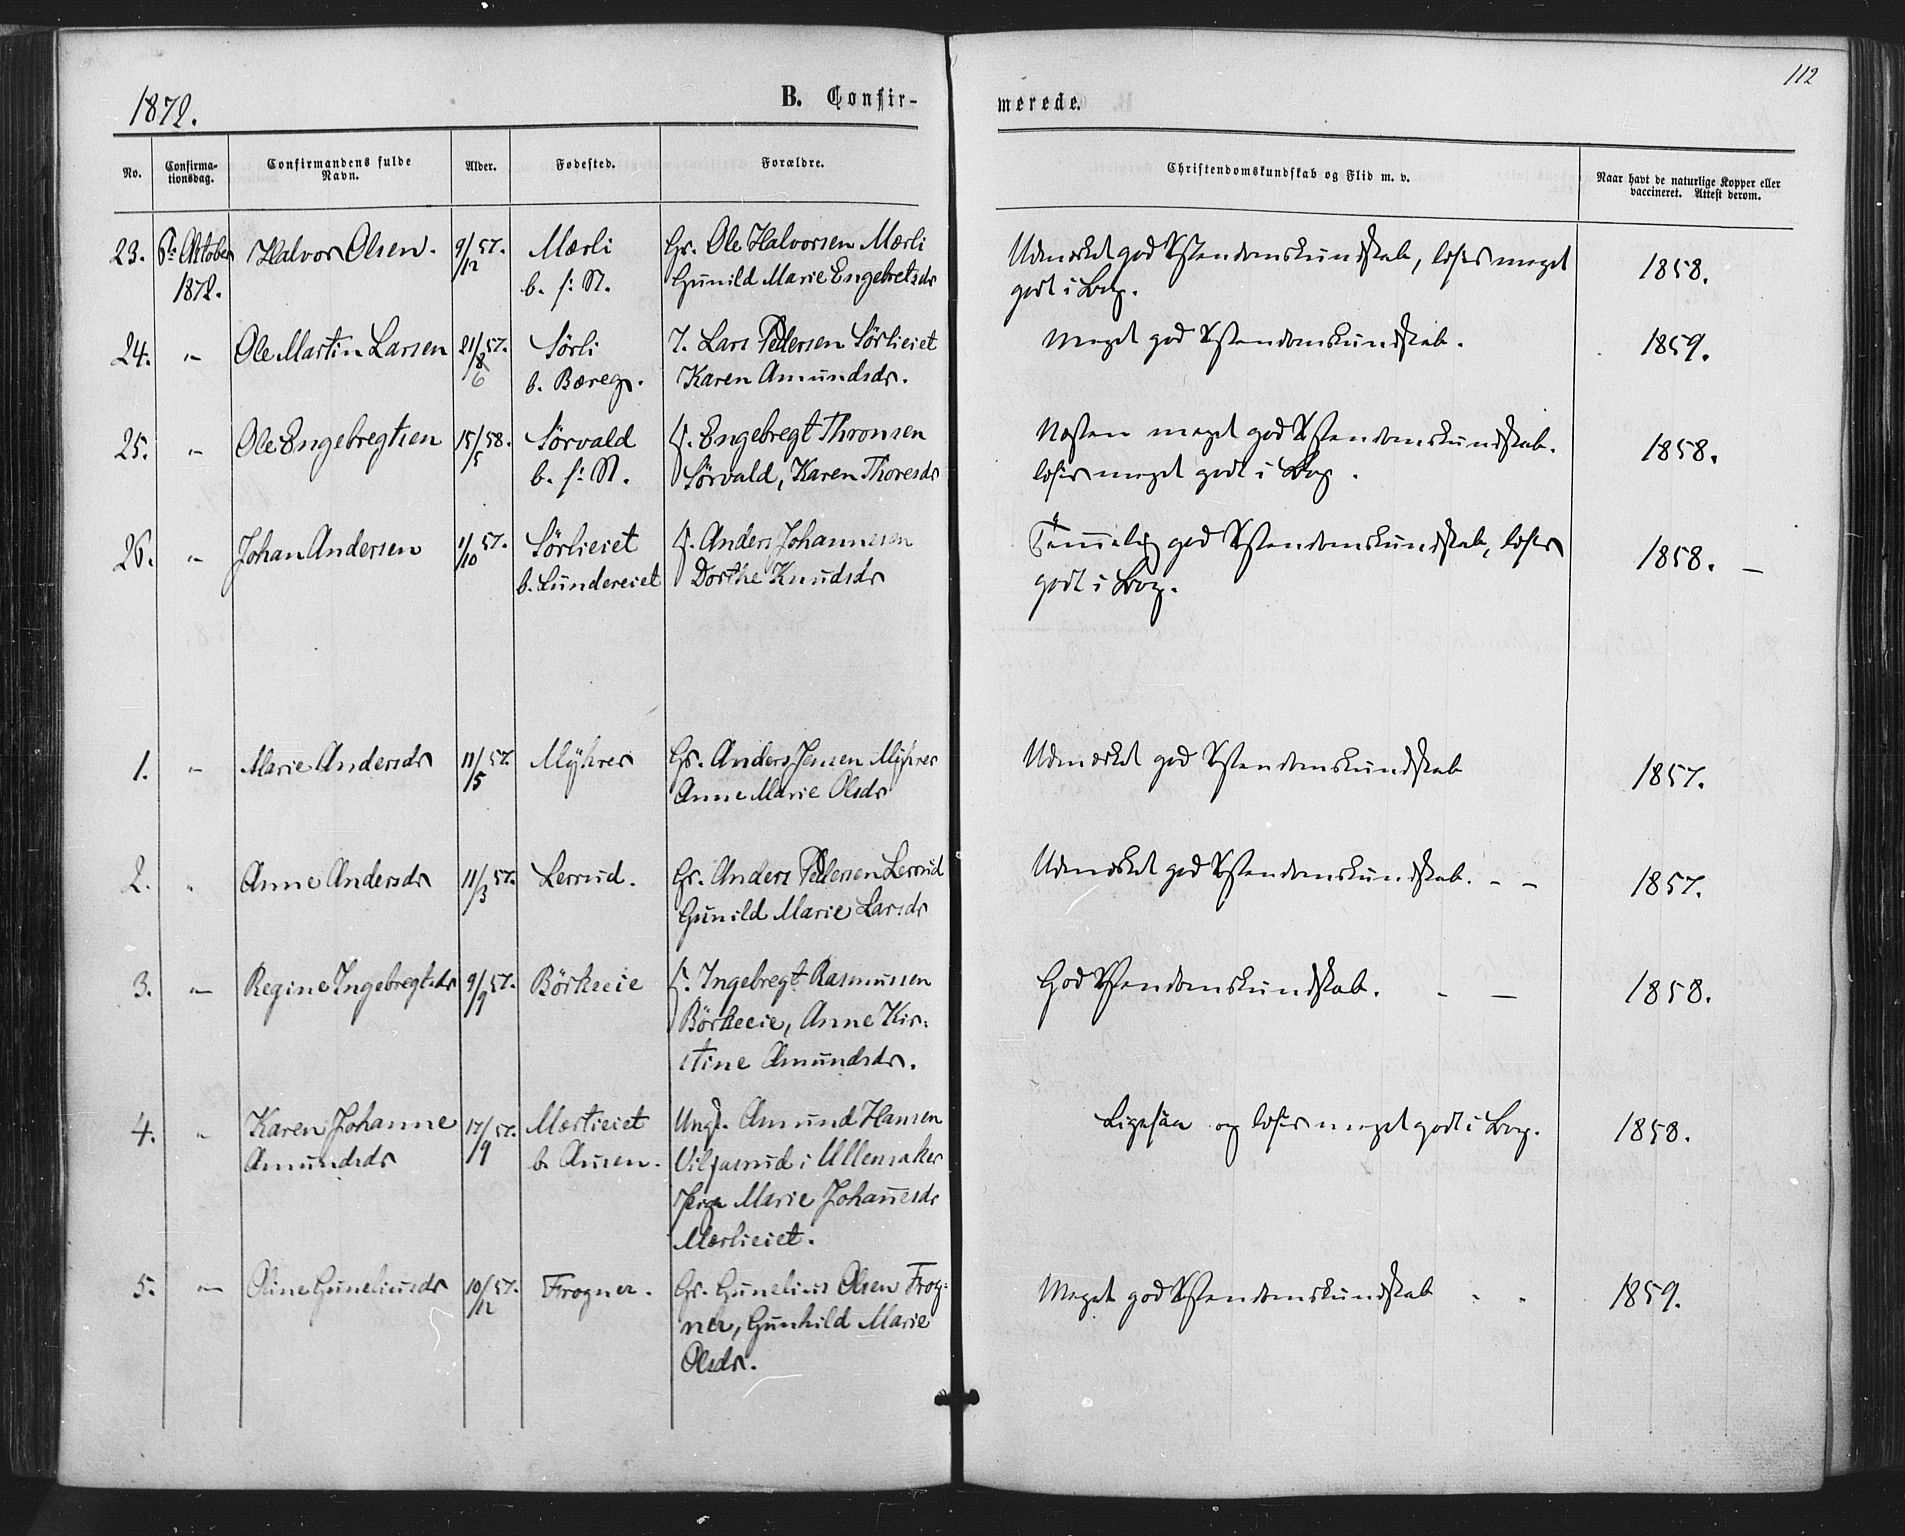 112
1872.
B. Confir-
merede.
No.
Confirma-
tionsdag.
Confirmandens fulde
Navn.
Alder.
Fødested.
Forældre.
Christendomskundskab og Flid m. v.
Naar havt de naturlige Kopper eller
vaccineret. Attest derom.
23. 6te Oktober Halvor Olsen. 9/12 57. Mærli Gr. Ole Halvorsen Mærli Udmærket god Xstendomskundskab, læser meget 1858.
1872. b. f: N. Gunild Marie Engebretsdr godt i Bog.
24. " Ole Martin Larsen 21/8 57. Sörli I. Lars Pedersen Sörlieiet Meget god Xstendomskundskab. 1859.
6 b. Bæreg. Karen Amundsdr.
25. " Ole Engebregtsen 15/5 58. Sörvald Engebregt Thronsen Næsten meget god Xstendomskundskab. 1858.
b. f: N. Sörvald, Karen Thoresdr læser meget godt i Bog.
26. " Johan Andersen 1/10 57. Sörlieiet Anders Johannesen Temmelig god Xstendomskundskab, læser 1858. –
b. Lundereiet Dorthe Knudsdr godt i Bog.
1. " Marie Andersdr 11/5 57. Mÿhrer Gr. Anders Jensen Mÿhrer Udmærket god Xstendomskundskab 1857.
Anne Marie Olsdr
2. " Anne Andersdr 11/3 57. Lerrud. Gr. Anders Pedersen Lerrud Udmærket god Xstendomskundskab. – – 1857.
Gunild Marie Larsdr
3. " Regine Ingebregtsdr 9/9 57. Börkeeie Ingebregt Rasmussen God Xstendomskundskab. - – 1858.
Börkeeie, Anne Kir-
stine Amundsdr.
4. " Karen Johanne 17/9 57. Mærlieiet Ungk. Amund Hansen Ligesaa og læser meget godt i Bog. 1858.
Amundsdr b. Ausen. i Ullensaker
Pige Marie Johañesdr
Mærlieiet.
5. " Oline Guneliusdr 10/12 57. Frogner. Gr. Gunelius Olsen Frog- Meget god Xstendomskundskab - - 1859.
ner, Gunhild Marie
Olsdr.